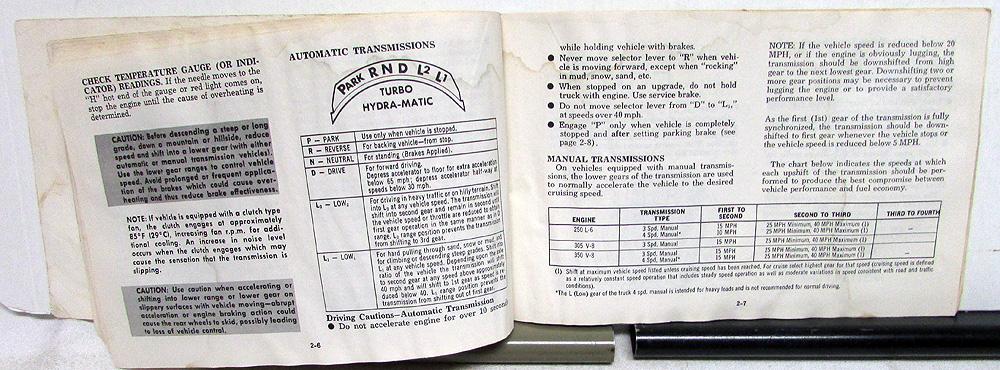 CHECK TEMPERATURE GAUGE (OR INDI-
CATOR) READINGS. If the needle moves to the
"H" hot end of the gauge or red light comes on,
stop the engine until the cause of overheating is
determined.
CAUTION: Before descending a steep or long
grade, down a mountain or hillside, reduce
speed and shift into a lower gear (with either
automatic or manual transmission vehicles).
Use the lower gear ranges to control vehicle
speed. Avoid prolonged or frequent applica-
tion of the brakes which could cause over-
heating and thus reduce brake effectiveness.
NOTE: If vehicle is equipped with a clutch type
fan, the clutch engages at approximately
85°F (29°C), increasing fan r.p.m. for addi-
tional cooling. An increase in noise level
occurs when the clutch engages which may
cause the sensation that the transmission is
slipping.
CAUTION: Use caution when accelerating or
shifting into lower range or lower gear on
slippery surfaces with vehicle moving—abrupt
acceleration or engine braking action could
cause the rear wheels to skid, possibly leading
to loss of vehicle control.
2-6
AUTOMATIC TRANSMISSIONS
PARK R N D L2 L1
TURBO
HYDRA-MATIC
P — PARK Use only when vehicle is stopped.
R — REVERSE For backing vehicle—from stop.
N — NEUTRAL For standing (Brakes Applied).
D — DRIVE For forward driving.
Depress accelerator to floor for extra acceleration
below 65 mph; depress accelerator half-way at
speeds below 30 mph.
L2 — LOW, For driving in heavy traffic or on hilly terrain. Shift
into L2 at any vehicle speed. The transmission will
shift into second gear and remain in second until
the vehicle speed or throttle are reduced to obtain
first gear operation in the same manner as in D
range. L2 range position prevents the transmission
from shifting to 3rd gear.
L1 — LOW, For hard pulling through sand, snow or mud and
for climbing or descending steep grades. Shift into
L1 at any vehicle speed. Depending upon the axle
ratio of the vehicle the transmission will shift
to second gear at any speed above approximately
40 mph and will shift to 1st gear as speed is re-
duced below 40. L1 range position prevents the
transmission from shifting out of first gear.
Driving Cautions—Automatic Transmission
● Do not accelerate engine for over 10 seconds
while holding vehicle with brakes.
● Never move selector lever to "R" when vehi-
cle is moving forward, except when "rocking"
in mud, snow, sand, etc.
● When stopped on an upgrade, do not hold
truck with engine. Use service brake.
● Do not move selector lever from "D" to "L1,"
at speeds over 40 mph.
● Engage "P" only when vehicle is completely
stopped and after setting parking brake (see
page 2-8).
MANUAL TRANSMISSIONS
On vehicles equipped with manual transmis-
sions, the lower gears of the transmission are used
to normally accelerate the vehicle to the desired
cruising speed.
NOTE: If the vehicle speed is reduced below 20
MPH, or if the engine is obviously lugging, the
transmission should be downshifted from high
gear to the next lowest gear. Downshifting two or
more gear positions may be necessary to prevent
lugging the engine or to provide a satisfactory
performance level.
As the first (1st) gear of the transmission is fully
synchronized, the transmission should be down-
shifted to first gear whenever the vehicle stops or
the vehicle speed is reduced below 5 MPH.
The chart below indicates the speeds at which
each upshift of the transmission should be per-
formed to produce the best compromise between
vehicle performance and fuel economy.
ENGINE TRANSMISSION TYPE FIRST TO SECOND SECOND TO THIRD THIRD TO FOURTH
250 L-6 3 Spd. Manual 15 MPH 25 MPH Minimum, 40 MPH Maximum (1) —
4 Spd. Manual* 10 MPH 25 MPH Minimum, 40 MPH Maximum (1)
305 V-8 3 Spd. Manual 15 MPH 25 MPH Minimum, 40 MPH Maximum (1)
350 V-8 3 Spd. Manual 15 MPH 25 MPH Minimum, 40 MPH Maximum (1) —
4 Spd. Manual* 15 MPH 25 MPH Minimum, 40 MPH Maximum (1)
(1) Shift at maximum vehicle speed listed unless cruising speed has been reached. For cruise select highest gear for that speed (cruising speed is defined
as a relatively constant speed operation that includes steady speed operation as well as moderate variations in speed consistent with road and traffic
conditions).
*The L (Low) gear of the truck 4 spd. manual is intended for heavy loads and is not recommended for normal driving.
2-7